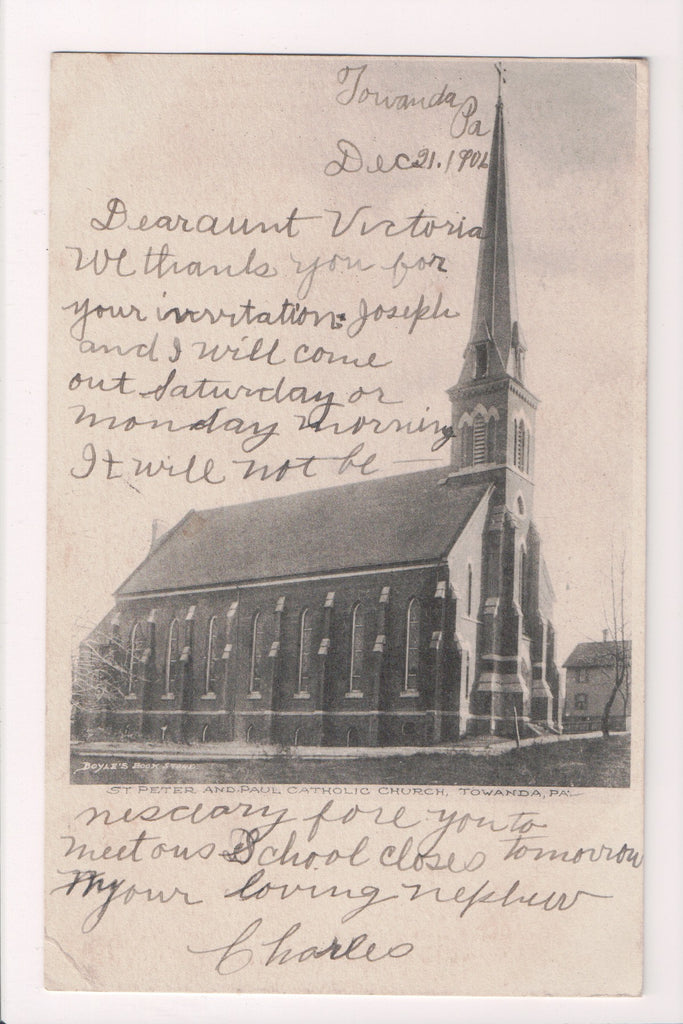 Towanda
Pa
Dec 21. 1906
Dear aunt Victoria
We thank you for
your invvitation. Joseph
and I will come
out Saturday or
monday morning
It will not be —
BOYLE'S BOOK STORE.
ST PETER AND PAUL CATHOLIC CHURCH, TOWANDA, PA.
nesciary fore you to
meet ous School closes tomorrow
your loving nephew
Charles